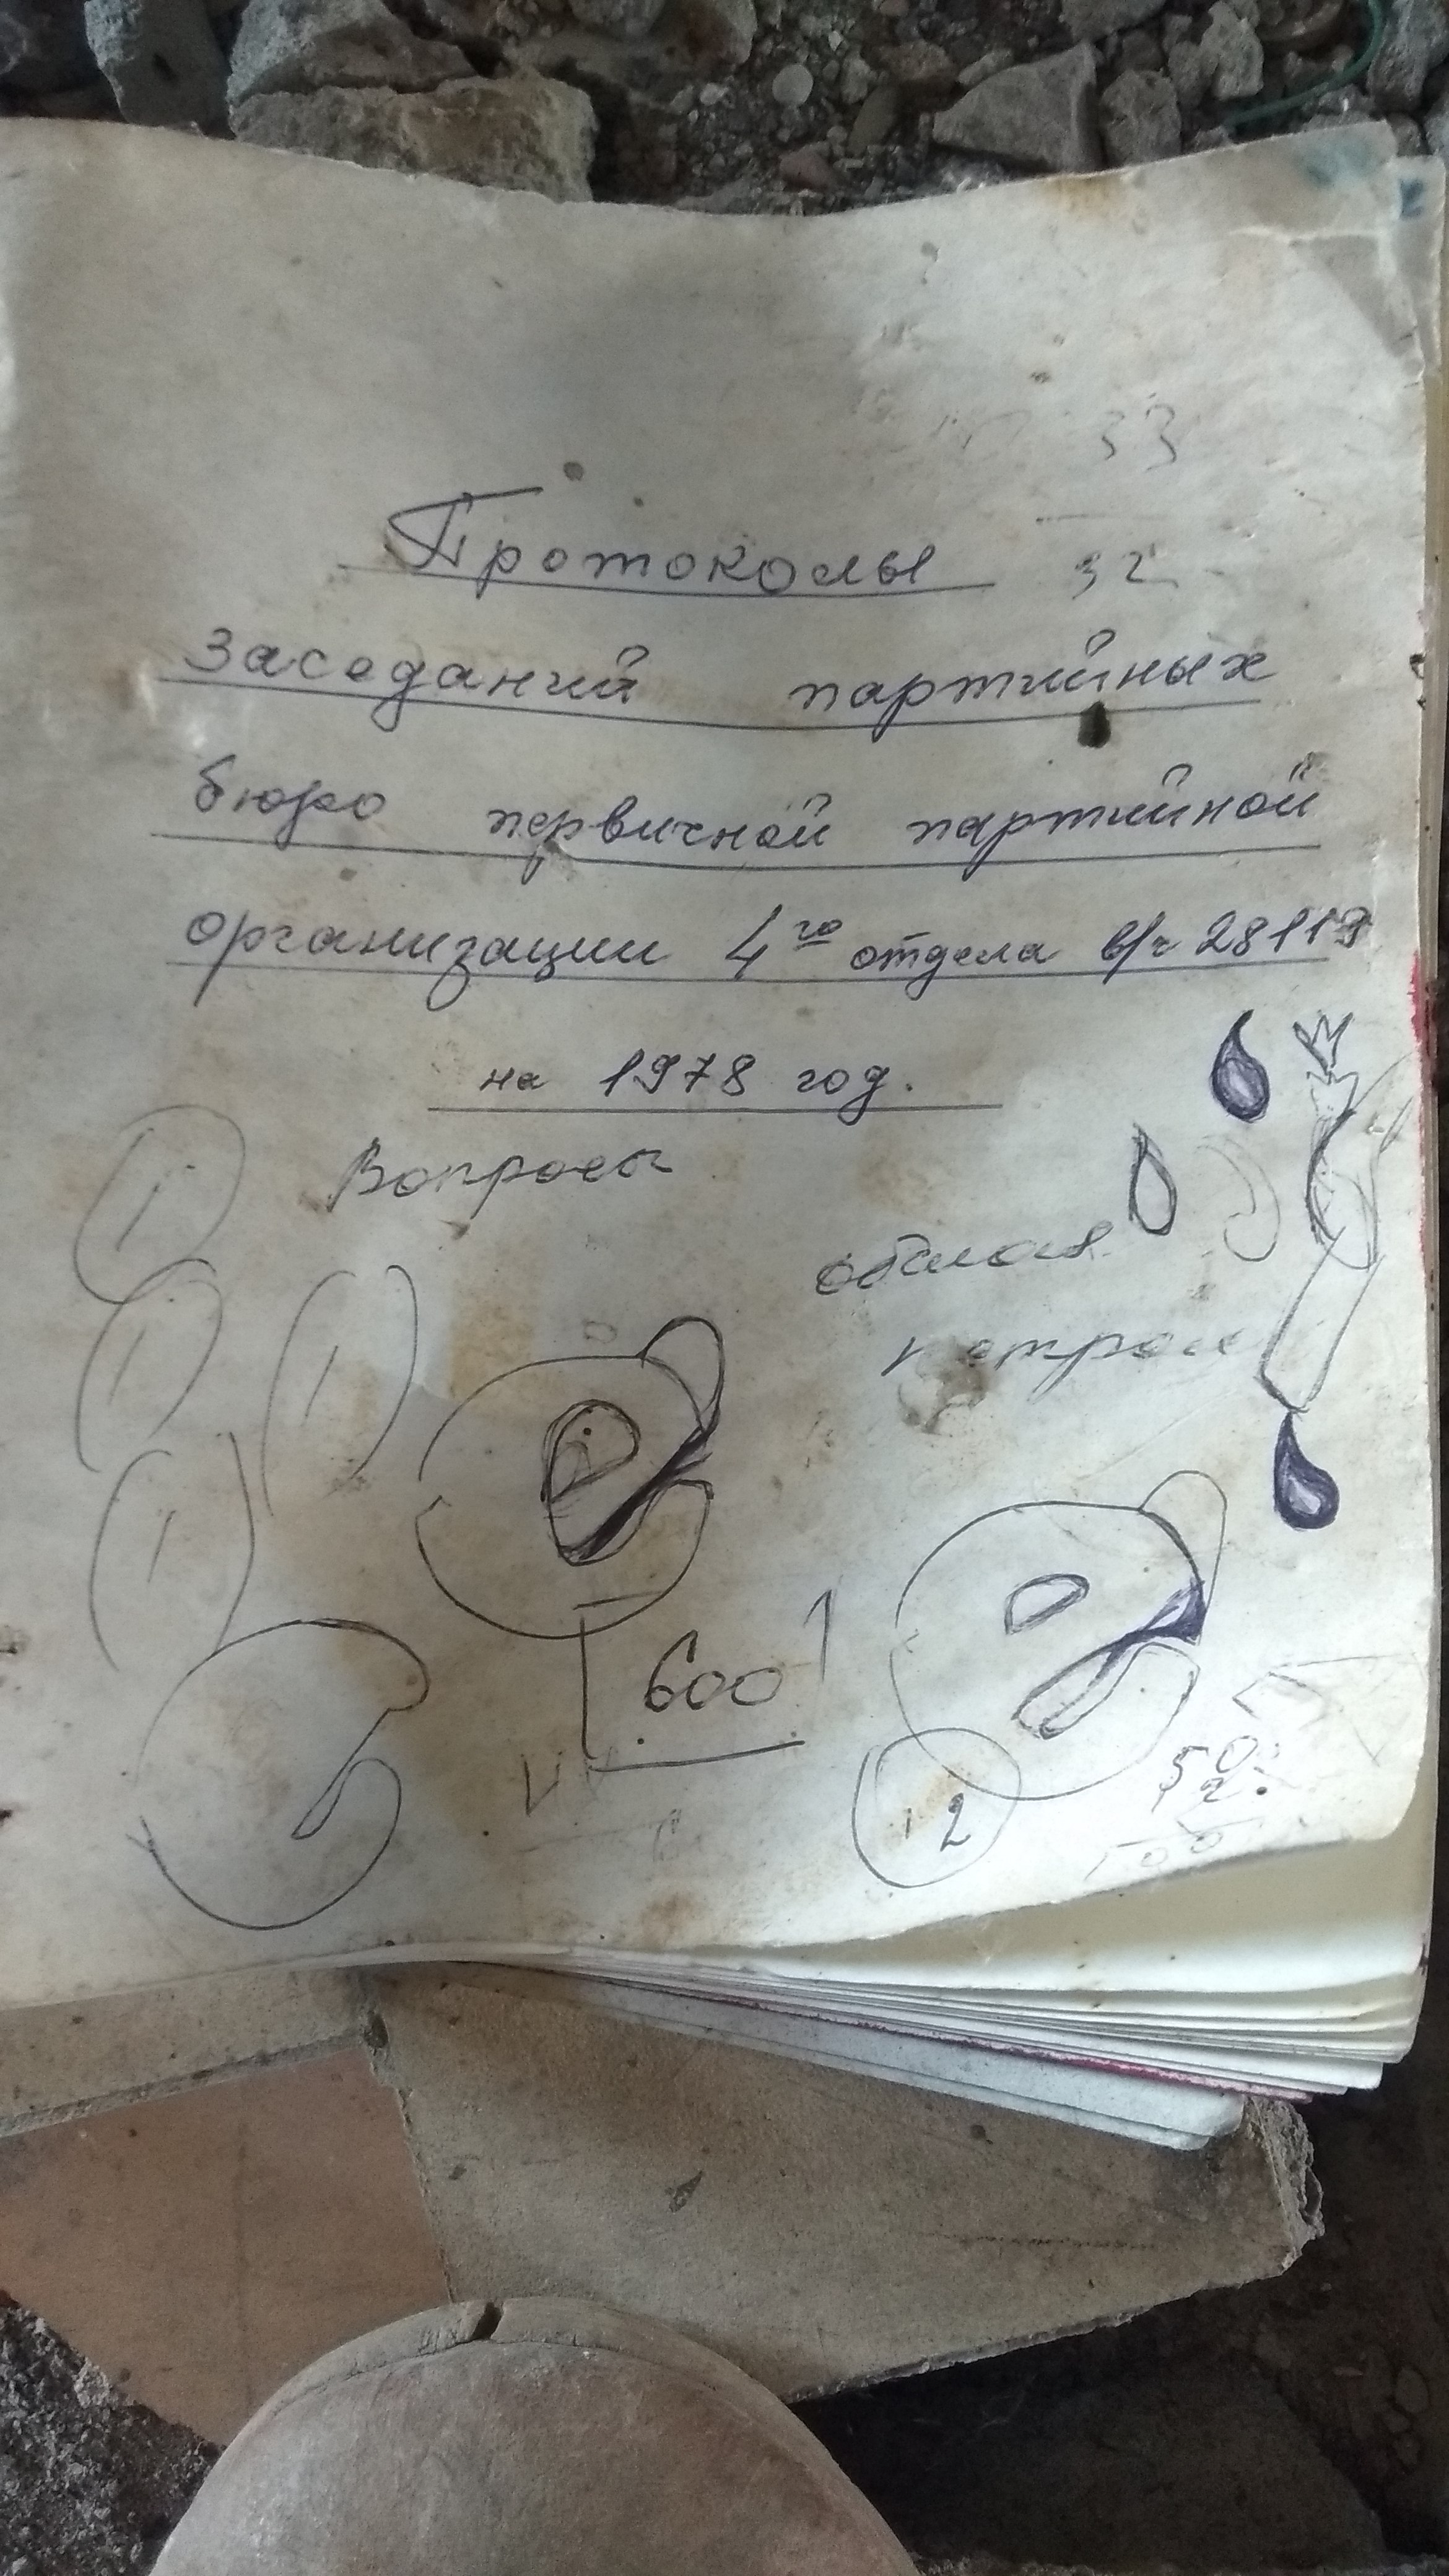 33
Протоколы 32
заседаний партийных
бюро первичной партийной
организации 4го отдела в/ч 28119
на 1978 год.
Вопросы
600
50
2
2